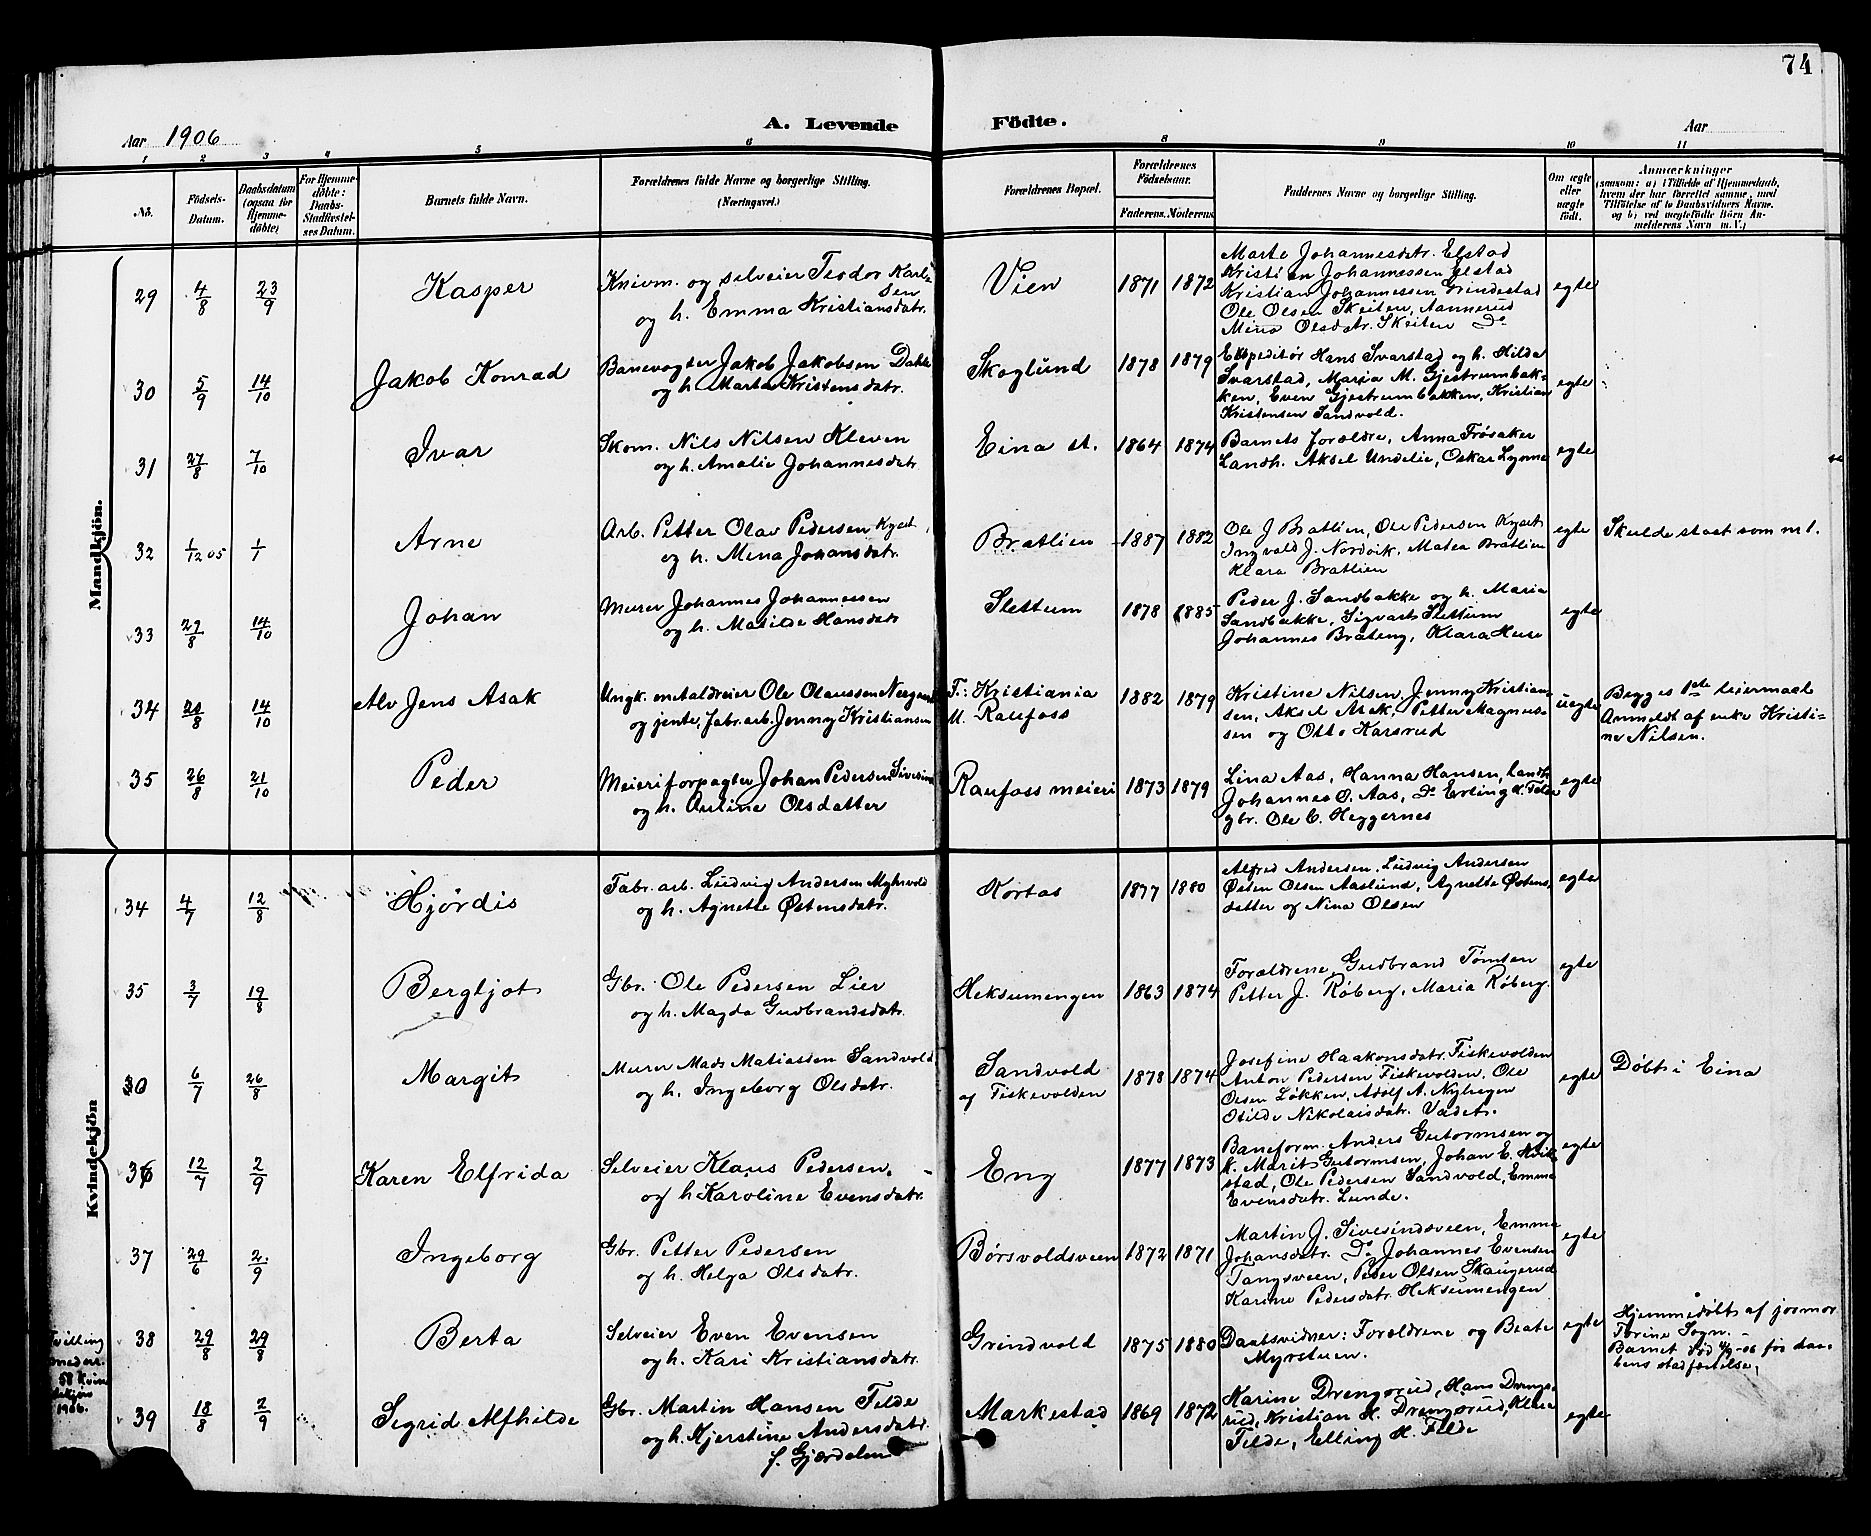 74
A. Levende Födte.
Aar 1906
Aar
1 2 3 4 5 6 8 9 10 11
No.
Födsels-Datum.
Daabsdatum (ogsaa for Hjemme-döbte)
For Hjemme-döbte: Daabs-Stadfæstel-ses Datum.
Barnets fulde Navn.
Forældrenes fulde Navne og borgerlige Stilling. (Næringsvei.)
Forældrenes Bopæl.
Forældrenes Födselsaar.
Faderens. Moderens.
Faddernes Navne og borgerlige Stilling.
Om ægte eller uægte födt.
Anmærkninger
(saasom: a) i Tilfælde af Hjemmedaab,
hvem der har forrettet samme, med
Tilföielse af to Daabsvidners Navne.
og b) ved uægtefödte Börn An-
melderens Navn m. V.)
Mandkjön.
29 4/8 23/9 Kasper
Knivm. og selveier Teodor Karl-
sen
og h. Emma Kristiansdatr.
Vien 1871 1872
Marte Johannesdatr. Elstad
Kristian Johannessen Elstad
Kristian Johannessen Grindestad
Ole Olsen Skeiten, Aannerud
Mina Olsdatr. Skeiten Do
egte
30 5/9 14/10 Jakob Konrad
Banevogter Jakob Jakobsen Dahle
og h. Marta Kristensdatr.
Skoglund 1878 1879
Ekspeditör Hans Svarstad og h. Hilda
Svarstad, Maria M. Gjestrumbak-
ken, Even Gjestrumbakken, Kristian
Kristensen Sandvold.
egte
31 27/8 7/10 Ivar
Skom. Nils Nilsen Kleven
og h. Amalie Johannesdatr
Eina st. 1864 1874
Barnets forældre, Anna Frösaker
Landh. Aksel Undelie, Oskar Lynne
egte
32 1/12 05 1/1 Arne
Arb. Petter Olav Pedersen
og h. Mina Johansdatr.
Bratlien 1887 1882
Ole J Bratlien, Ole Pedersen
Ingvald J. Nordvik, Matea Bratlien
Klara Bratlien
egte
Skulde staat som no 1.
33 27/8 14/10 Johan
Murer Johannes Johannessen
og h. Matilde Hansdatr
Slettum 1878 1885
Peder J. Sandbakke og h. Maria
Sandbakke, Sigvart Slettum
Johannes Brateng, Klara Huse
egte
34 20/8 14/10 Alv Jens Asak
Ungk. metaldreier Ole Olaussen
og jente, fabr.arb. Jenny Kristiansen
F.: Kristiania
M. Raufoss
1882 1879
Kristine Nilsen, Jenny Kristian-
sen, Aksel Asak, Petter Magnus-
sen og Otto Karsrud
uegte
Begges 1ste leiermaal
Anmeldt af enke Kristi-
ne Nilsen.
35 26/8 21/10 Peder
Meieriforpagter Johan Pedersen Sivesind
og h. Auline Olsdatter
Raufoss meieri 1873 1879
Lina Aas, Hanna Hansen, Landh.
Johannes O. Aas, Do Erling K. Felde
gbr. Ole C. Heggernes
egte
Kvindekjön
34 4/7 12/8 Hjørdis
Fabr. arb. Ludvig Andersen Myhrvold
og h. Agnette Østensdatr.
Kortas 1877 1880
Alfred Andersen, Ludvig Andersen
Østen Olsen Aaslund, Agnette Østens-
datter og Nina Olsen
egte
35 3/7 19/8 Bergljot
Gbr. Ole Pedersen Lier
og h. Magda Gudbrandsdatr.
Heksumengen 1863 1874
Forældrene, Gudbrand Tømten
Petter J. Røberg, Maria Røberg.
egte
30 6/7 26/8 Margit
Murer Mads Matiassen Sandvold
og h. Ingeborg Olsdatr.
Sandvold
af Fiskevolden
1878 1874
Josefine Haakonsdatr. Fiskevolden
Anton Pedersen Fiskevolden, Ole
Olsen Løkken, Adolf A. Nyhagen
Otilde Nikolaisdatr. Vadet.
egte
Døbt i Eina
36 12/7 2/9 Karen Elfrida
Selveier Klaus Pedersen
og h. Karoline Evensdatr.
Eng 1877 1873
Baneform. Anders Gutormsen og
h. Marit Gutormsen, Johan E.
stad, Ole Pedersen Sandvold, Emma
Evensdatr. Lunde.
egte
37 29/6 2/9 Ingeborg
Gbr. Petter Pedersen
og h. Helga Olsdatr.
Børsvoldsveen 1872 1871
Martin J. Sivesindsveen, Emma
Johansdatr. Do, Johannes Evensen
Tangsveen, Peder Olsen Skaugerud
Karine Pedersdatr. Heksumengen
egte
38 29/8 29/8 Berta
Selveier Even Evensen
og h. Kari Kristiansdatr.
Grindvold 1875 1880
Daabsvidner: Forældrene og Beate
Myrstuen.
egte
Hjemmedøbt af jormor
Torine Sogn.
Barnet død 4/9-06 før daa-
bens stadfæstelse.
Tvilling
58 kvin
dekjøn
1906.
39 18/8 2/9 Sigrid Alfhilde
Gbr. Martin Hansen Felde
og h. Kjerstine Andersdatr.
f. Gjærdalen
Markestad 1869 1872
Karine Drengsrud, Hans Drengs-
rud, Kristian H. Drengsrud, Klara
Felde, Elling H. Felde
egte